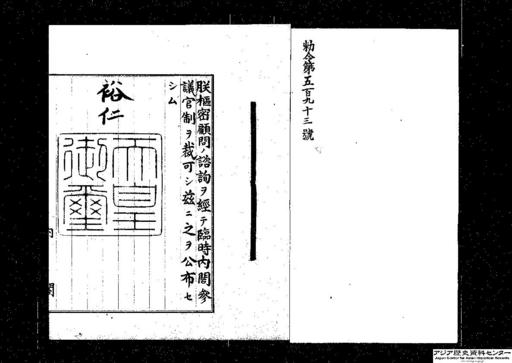 勅令第五百九十三號
朕樞密顧問ノ諮詢ヲ經テ臨時内閣參
議官制ヲ裁可シ茲ニ之ヲ公布セ
シム
裕仁
天皇
御璽
内閣
アジア歴史資料センター
Japan Center for Asian Historical Records